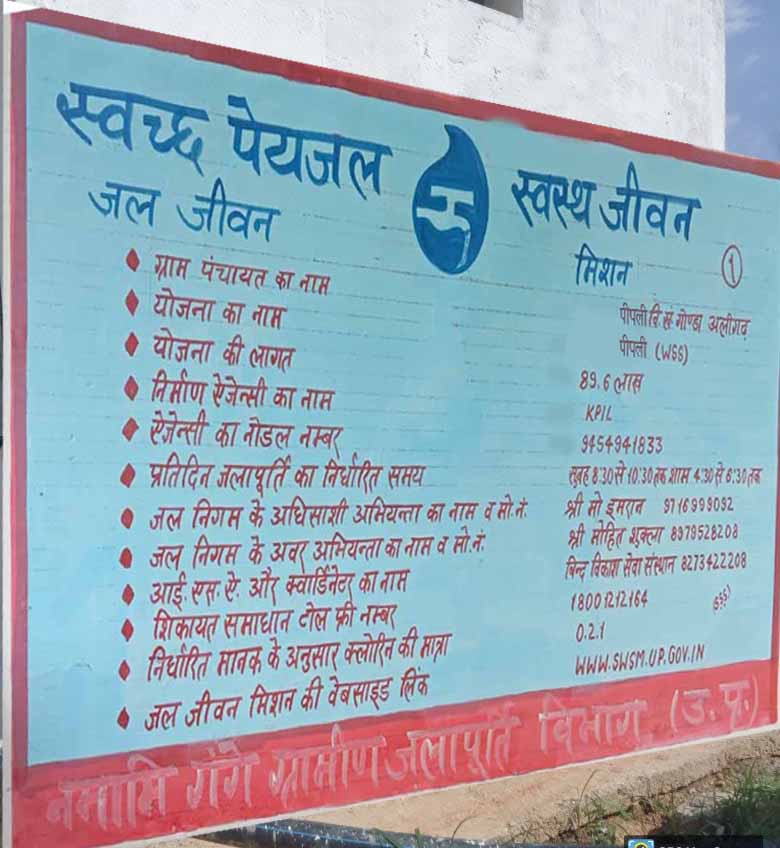 स्वच्छ पेयजल स्वस्थ जीवन
जल जीवन मिशन
①
ग्राम पंचायत का नाम पीपली वि.सं. गोण्डा अलीगढ़
योजना का नाम पीपली (WSS)
योजना की लागत 89.6 लाख
निर्माण ऐजेन्सी का नाम KPIL
ऐजेन्सी का नोडल नम्बर 9454941833
प्रतिदिन जलापूर्ति का निर्धारित समय सुबह 8:30 से 10:30 तक शाम 4:30 से 6:30 तक
जल निगम के अधिसाशी अभियन्ता का नाम व मो.नं. श्री मो इमरान 9716999092
जल निगम के अवर अभियन्ता का नाम व मो.नं. श्री मोहित शुक्ला 8979528208
आई.एस.ऐ. और क्वार्डिनेटर का नाम बिन्द विकाश सेवा संस्थान 8273422208
शिकायत समाधान टोल फ्री नम्बर 18001212164
निर्धारित मानक के अनुसार क्लोरिन की मात्रा 0.2.1
जल जीवन मिशन की वेबसाइड लिंक WWW.SWSM.UP.GOV.IN
नमामि गंगे ग्रामीण जलापूर्ति विभाग (उ.प्र.)